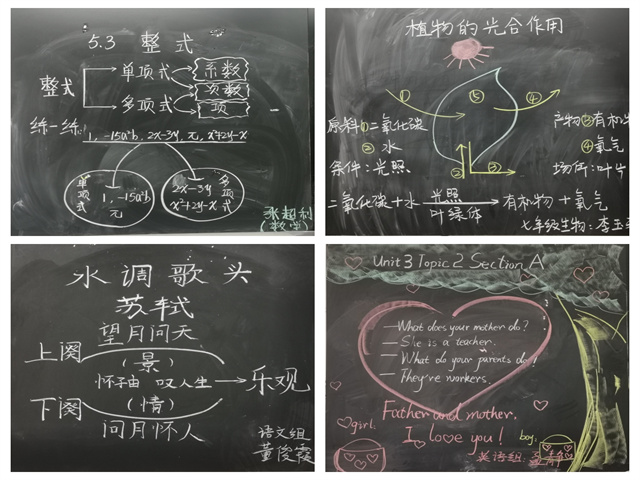 5.3 整式
整式
单项式
系数
次数
多项式
项
练一练
1, -15a²b, 2x-3y, 元, x²+2y-x
单项式
1, -15a²b
元
2x-3y
x²+2y-x
多项式
张超利
(数学)
植物的光合作用
① ⑤ ④
原料①二氧化碳
② 水
条件:光照
② ③
产物③有机
④氧气
场所:叶片
二氧化碳+水 光照 叶绿体 → 有机物+氧气
七年级生物:李玉
水调歌头
苏轼
望月问天
上阕
(景)
怀子由 叹人生 → 乐观
下阕
(情)
问月怀人
语文组
董俊霞
Unit 3 Topic 2 Section A
—What does your mother do?
—She is a teacher.
—What do your parents do?
—They're workers.
Father and mother.
I love you!
girl.
boy.
英语组: